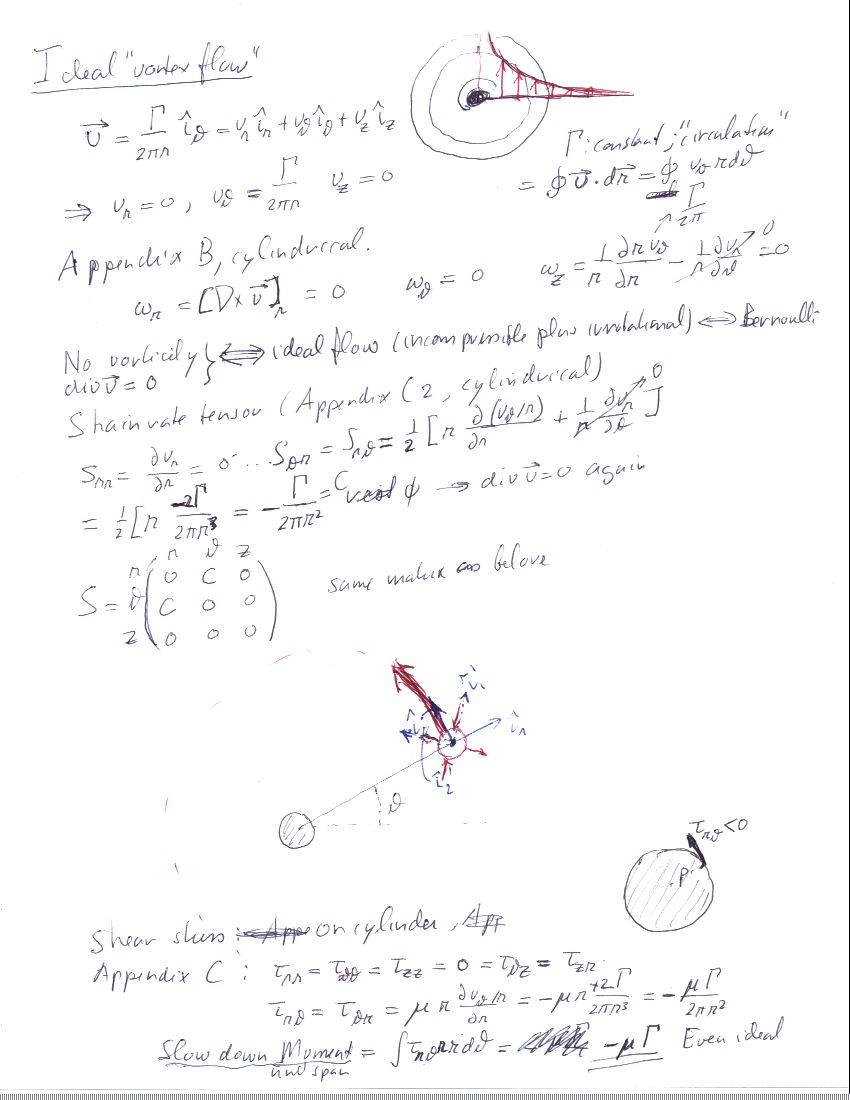 Ideal "vortex flow"
$\vec{v} = \frac{\Gamma}{2\pi r} \hat{i}_\vartheta = v_r \hat{i}_r + v_\vartheta \hat{i}_\vartheta + v_z \hat{i}_z$
Γ: constant; "circulation"
$= \oint \vec{v} \cdot d\vec{r} = \oint v_\vartheta r d\vartheta$
$\Rightarrow v_r = 0, \; v_\vartheta = \frac{\Gamma}{2\pi r} \; v_z = 0$
Appendix B, cylindrical.
$\nearrow \frac{\Gamma}{2\pi}$
$\omega_r = [\nabla \times \vec{v}]_r = 0 \quad \omega_\vartheta = 0 \quad \omega_z = \frac{1}{r} \frac{\partial r v_\vartheta}{\partial r} - \frac{1}{r} \frac{\partial v_r}{\partial \vartheta} \nearrow 0 = 0$
No vorticity } ⟺ ideal flow (incompressible plus irrotational) ⟺ Bernoulli
$div \vec{v} = 0$
Strain rate tensor (Appendix C2, cylindrical)
$S_{rr} = \frac{\partial v_r}{\partial r} = 0 \dots S_{\vartheta r} = S_{r\vartheta} = \frac{1}{2} [ r \frac{\partial (v_\vartheta / r)}{\partial r} + \frac{1}{r} \frac{\partial v_r}{\partial \vartheta} \nearrow 0 ]$
$= \frac{1}{2} [ r \frac{-2\Gamma}{2\pi r^3} = -\frac{\Gamma}{2\pi r^2} = C$ → $div \vec{v} = 0$ again
r ϑ z
r 0 C 0
S = ϑ C 0 0
z 0 0 0
same matrix as before
$\hat{i}_1'$
$\hat{i}_r$
$\hat{i}_2'$
ϑ
$\tau_{r\vartheta} < 0$
P
Shear stress: On cylinder,
Appendix C: $\tau_{rr} = \tau_{\vartheta\vartheta} = \tau_{zz} = 0 = \tau_{\vartheta z} = \tau_{zr}$
$\tau_{r\vartheta} = \tau_{\vartheta r} = \mu r \frac{\partial v_\vartheta / r}{\partial r} = -\mu r \frac{+2\Gamma}{2\pi r^3} = -\frac{\mu \Gamma}{2\pi r^2}$
Slow down Moment $= \int \tau_{r\vartheta} r r d\vartheta = -\mu \Gamma$ Even ideal
unit span